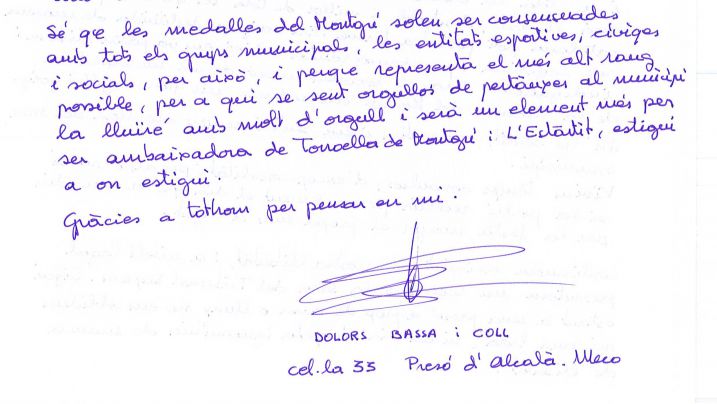 Sé que les medalles del Montgrí solen ser consensuades
amb tots els grups municipals, les entitats esportives, cíviques
i socials, per això, i perque representa el més alt rang
possible, per a qui se sent orgullós de pertànyer al municipi
la lluïré amb molt d'orgull i serà un element més per
ser ambaixadora de Torroella de Montgrí i L'Estartit, estigui
a on estigui.
Gràcies a tothom per pensar en mi.
DOLORS BASSA i COLL
cel.la 33 Presó d'Alcalà. Meco